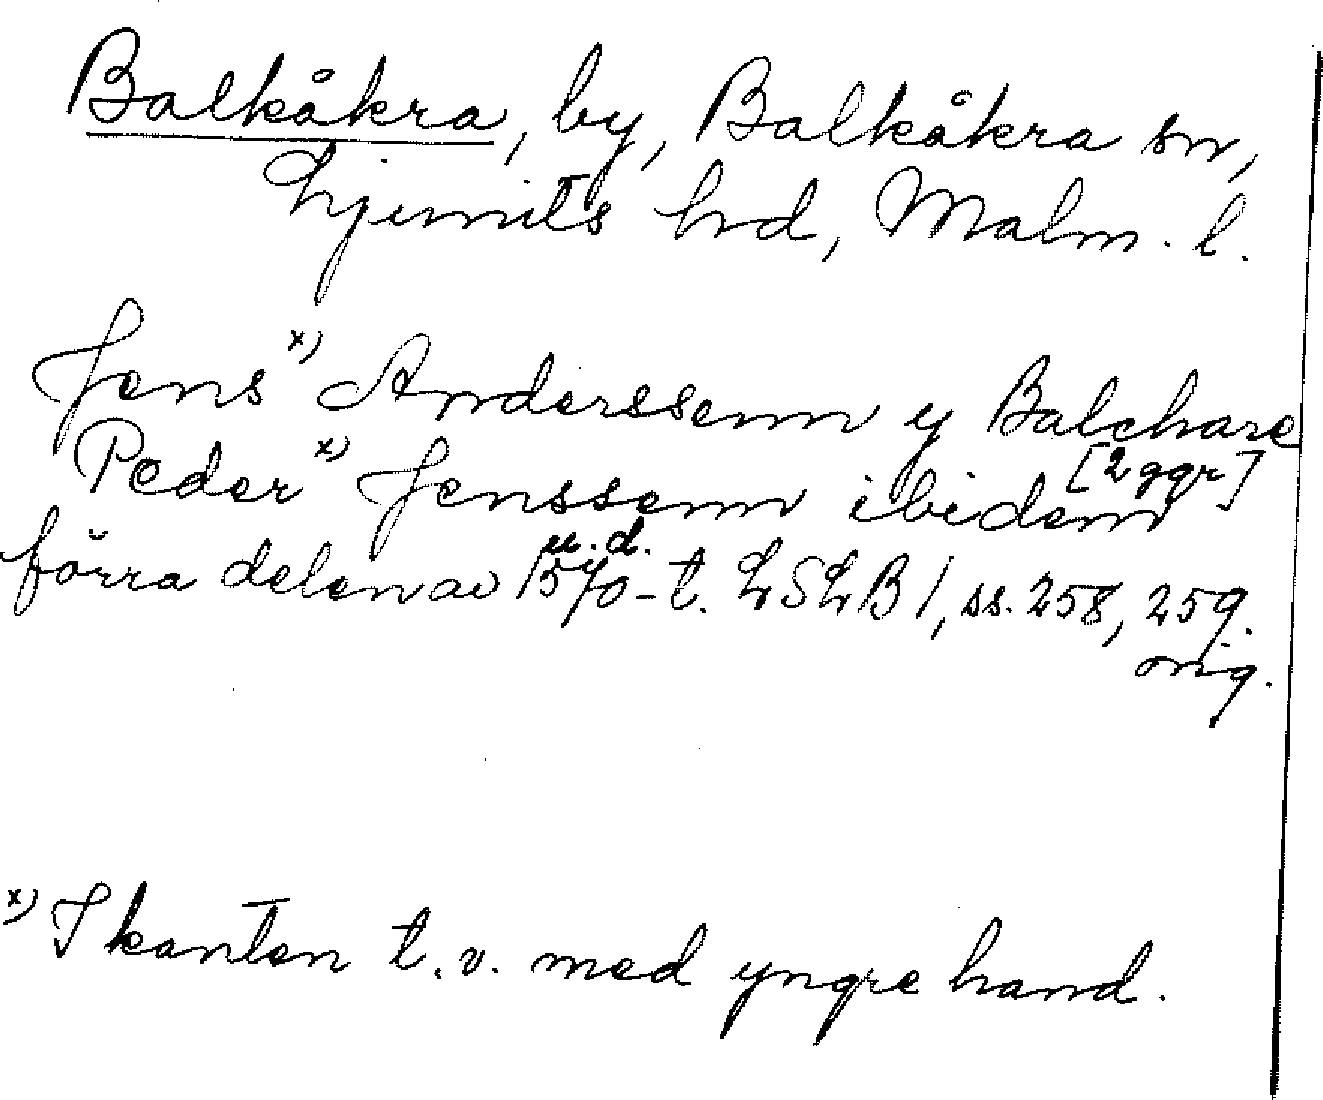 Balkåkra, by, Balkåkra sn,
Ljunits hrd, Malm. l.
Jens x) Anderssenn y Balchare
Peder x) Jenssenn ibidem [2 ggr]
u. d.
förra delen av 1570-t. LSLB 1, ss. 258, 259.
orig.
x) I kanten t.v. med yngre hand.